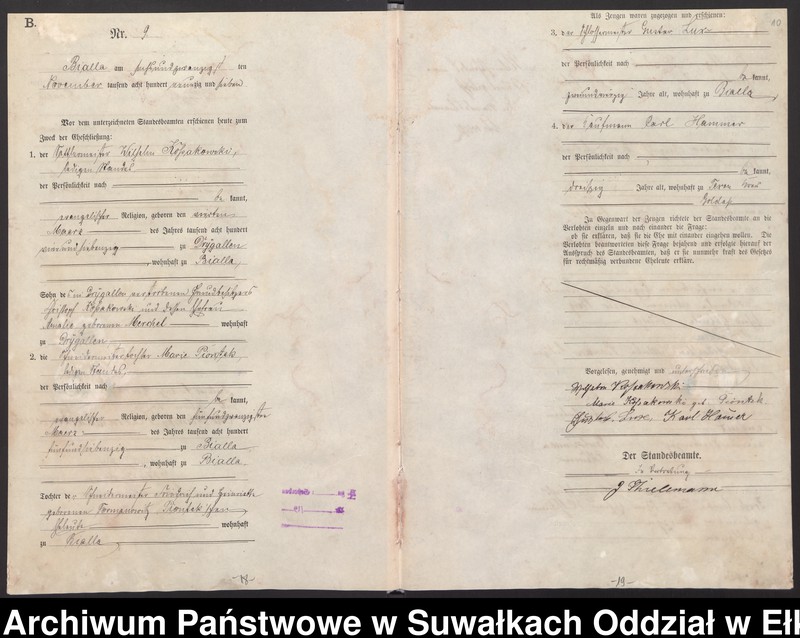 B.
Nr. 9
Bialla am fünfundzwanzigsten den
November tausend acht hundert neunzig und sieben
Vor dem unterzeichneten Standesbeamten erschienen heute zum
Zweck der Eheschließung:
1. der Sattlermeister Wilhelm Kossakowski,
ledigen Standes
der Persönlichkeit nach
be kannt,
evangelischer Religion, geboren den vierten
Maerz des Jahres tausend acht hundert
vierundsiebenzig zu Drygallen
, wohnhaft zu Bialla,
Sohn des in Drygallen verstorbenen Grundbesitzers
Kossakowski und dessen Ehefrau
Amalie geborenen Merchel wohnhaft
zu Drygallen
2. die Marie Piontek,
ledigen Standes,
der Persönlichkeit nach
be kannt,
evangelischer Religion, geboren den fünfundzwanzigsten
Maerz des Jahres tausend acht hundert
fünfundsiebenzig zu Bialla
, wohnhaft zu Bialla
Tochter des und Henriette
geborenen Piontek'schen
Eheleute wohnhaft
zu Bialla
-18-
Als Zeugen waren zugezogen und erschienen:
10
3. der Schlossermeister Gustav Lux
der Persönlichkeit nach
be kannt,
Jahre alt, wohnhaft zu Bialla
4. der Kaufmann Carl Hammer
der Persönlichkeit nach
be kannt,
dreißig Jahre alt, wohnhaft zu
Goldap
In Gegenwart der Zeugen richtete der Standesbeamte an die
Verlobten einzeln und nach einander die Frage:
ob sie erklären, daß sie die Ehe mit einander eingehen wollen. Die
Verlobten beantworteten diese Frage bejahend und erfolgte hierauf der
Ausspruch des Standesbeamten, daß er sie nunmehr kraft des Gesetzes
für rechtmäßig verbundene Eheleute erkläre.
Vorgelesen, genehmigt und unterschrieben
Wilhelm Kossakowski
Marie Kossakowski geb. Piontek
Gustav Lux, Karl Hammer
Der Standesbeamte.
In Vertretung
J Thielemann
-19-
Archiwum Państwowe w Suwałkach Oddział w Eł